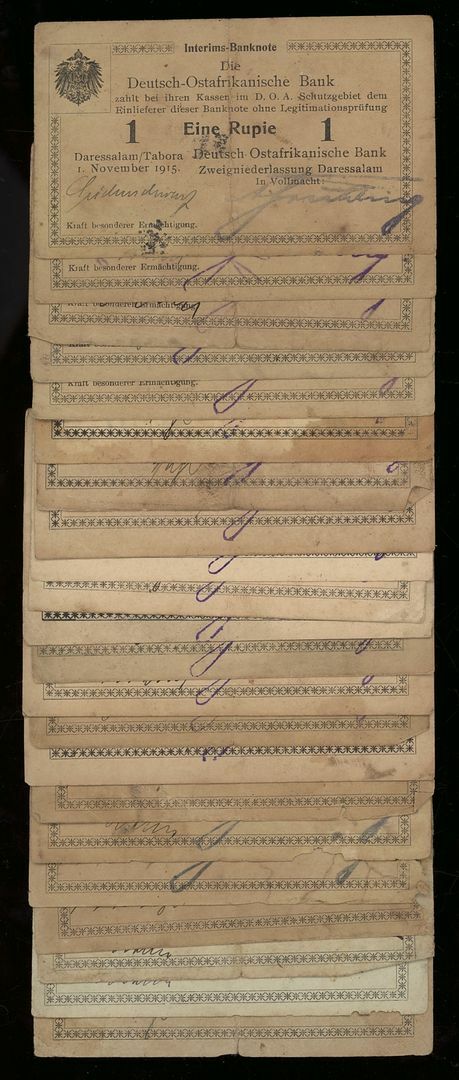 Interims-Banknote
Die
Deutsch-Ostafrikanische Bank
zahlt bei ihren Kassen im D. O. A. Schutzgebiet dem
Einlieferer dieser Banknote ohne Legitimationsprüfung
1 Eine Rupie 1
Daressalam/Tabora Deutsch-Ostafrikanische Bank
1. November 1915. Zweigniederlassung Daressalam
In Vollmacht:
Kraft besonderer Ermächtigung.
Kraft besonderer Ermächtigung.
Kraft besonderer Ermächtigung.
Kraft besonderer Ermächtigung.